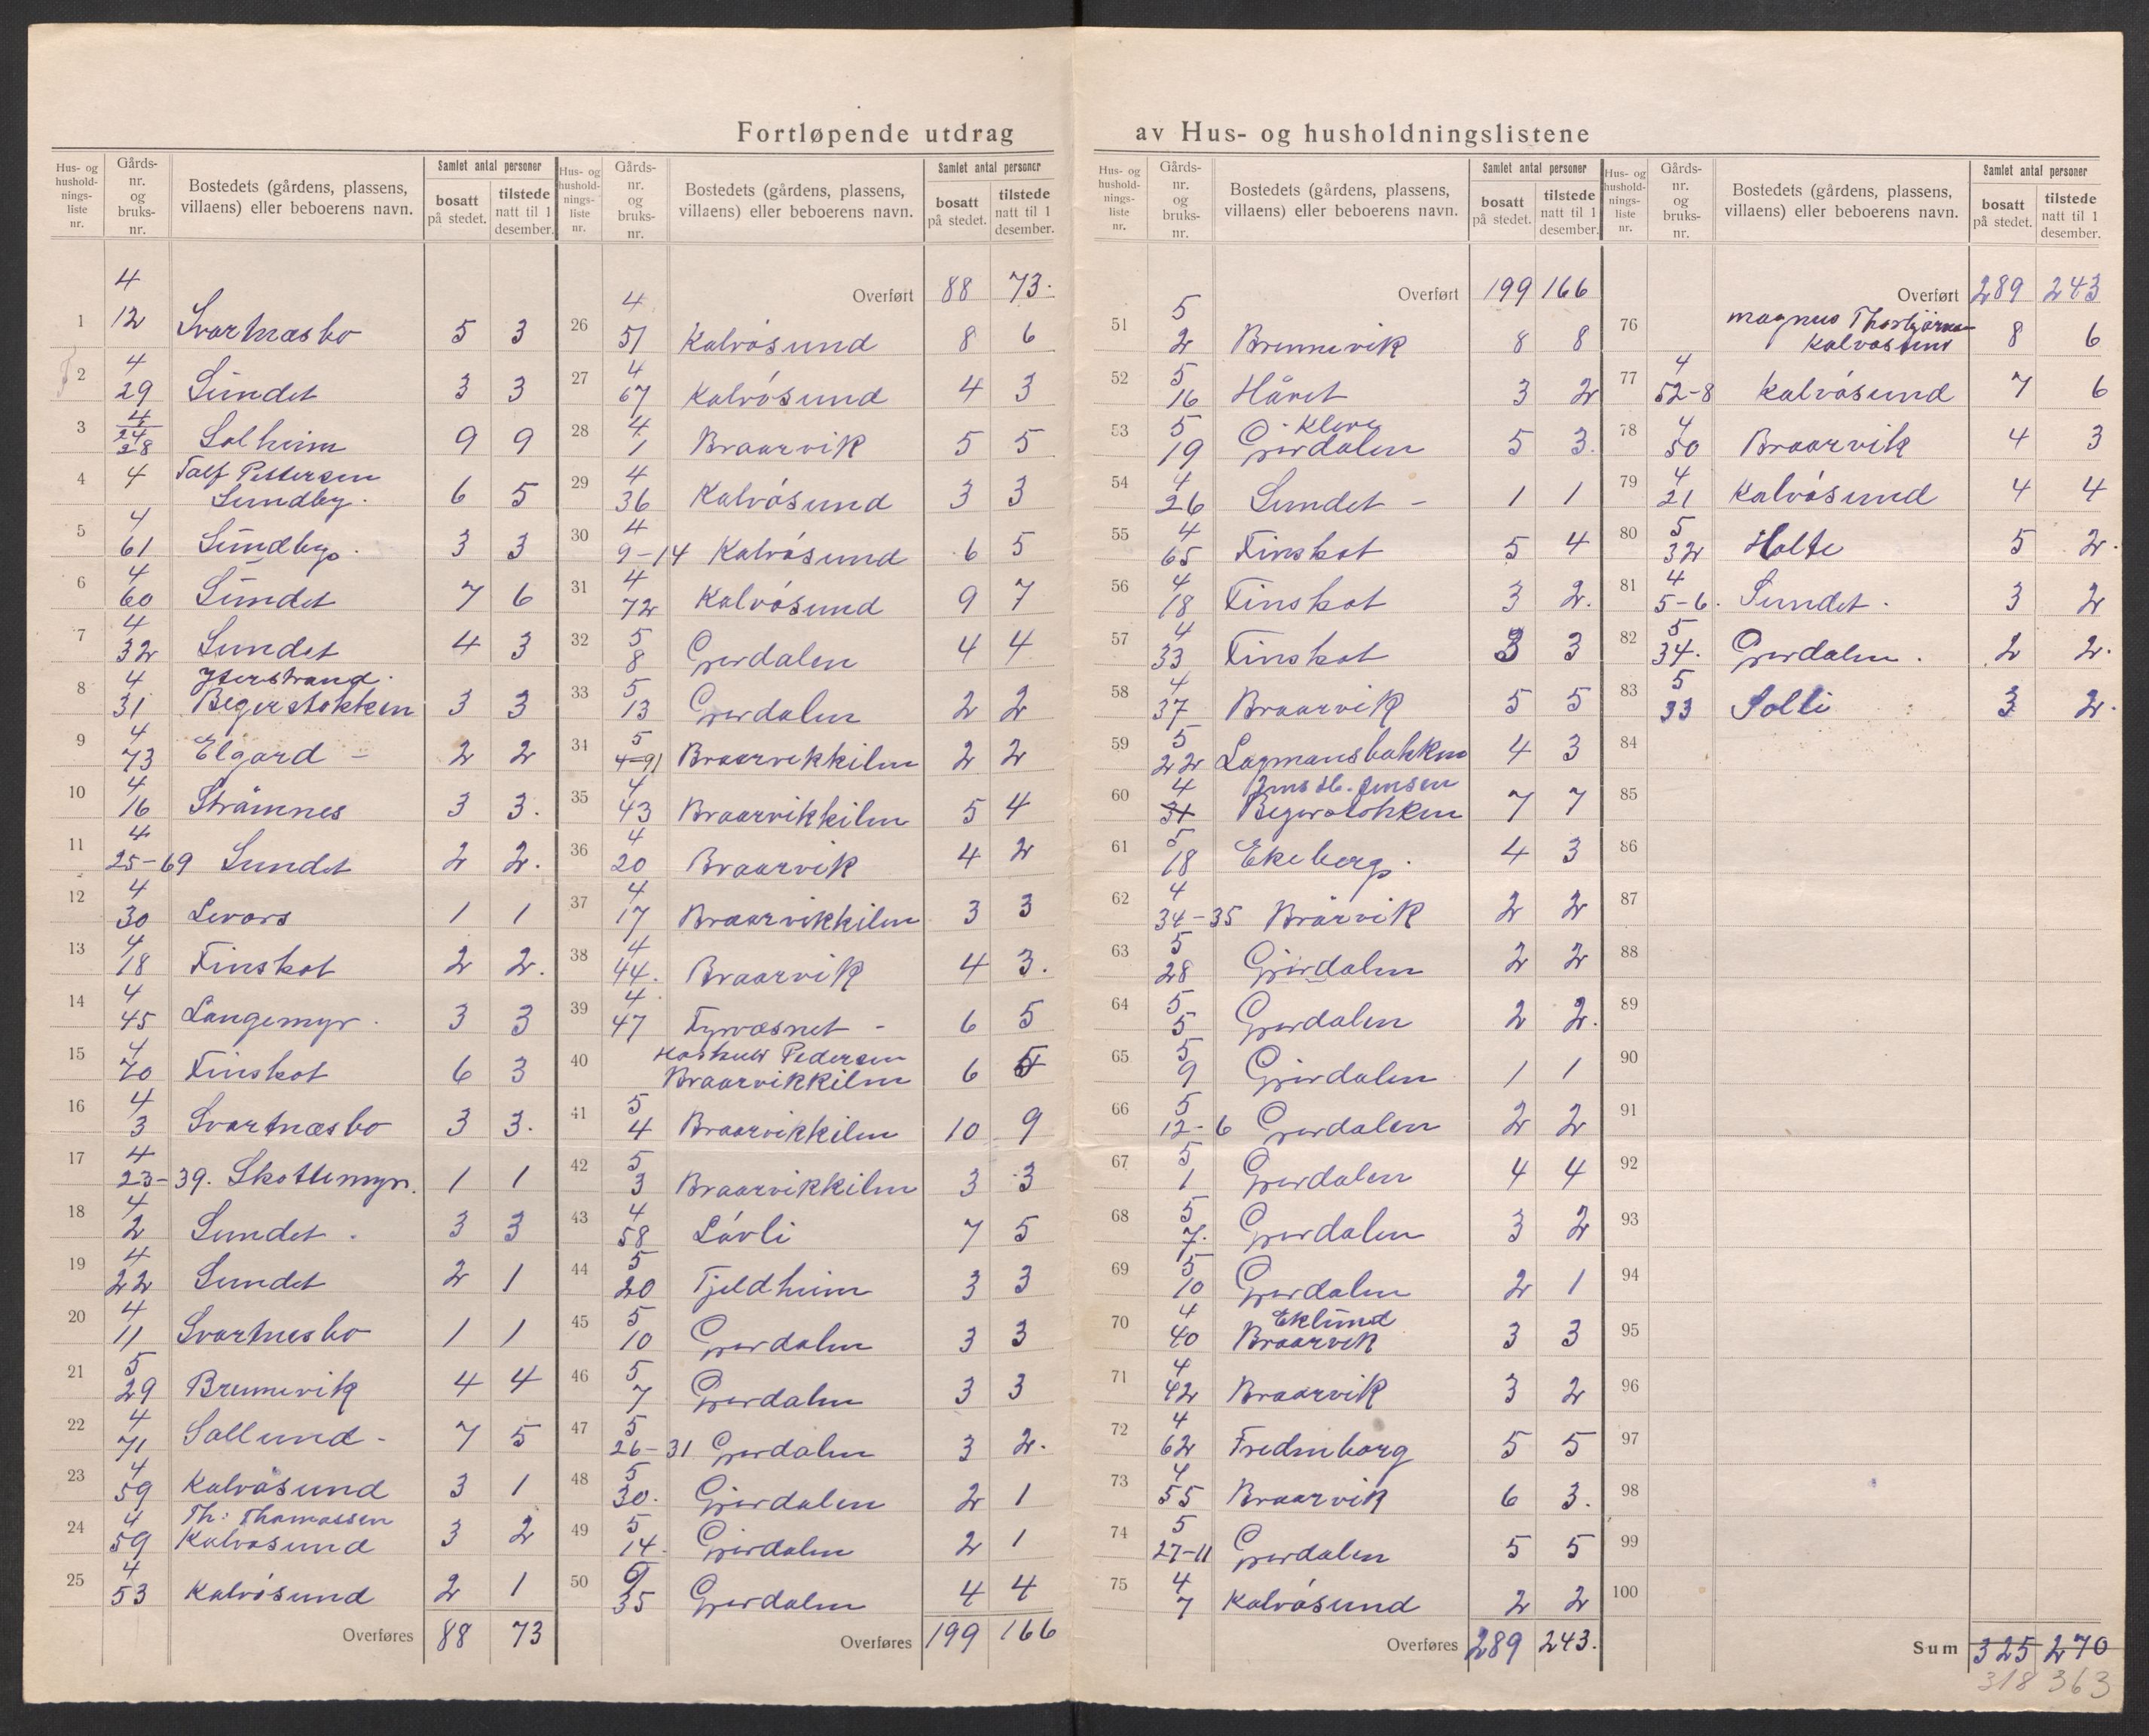 Fortløpende utdrag av Hus- og husholdningslistene
Hus- og hushold-nings-liste nr. Gårds-nr. og bruks-nr. Bostedets (gårdens, plassens, villaens) eller beboerens navn. Samlet antal personer bosatt på stedet. tilstede natt til 1 desember.
1 4 12 Svartnæsbo 5 3
2 4 29 Sundet 3 3
3 4 24 28 Solheim 9 9
4 4 Pettersen Sundby. 6 5
5 4 61 Sundby. 3 3
6 4 60 Sundet 7 6
7 4 32 Sundet 4 3
8 4 31 Begerstokken 3 3
9 4 73 Elgard - 2 2
10 4 16 Strömnes 3 3.
11 4 25-69 Sundet 2 2.
12 4 30 Levors 1 1
13 4 18 Finskot 2 2.
14 4 45 Langemyr. 3 3
15 4 70 Finskot 6 3
16 4 3 Svartnæsbo 3 3.
17 4 23-39. Skottemyr. 1 1
18 4 2 Sundet. 3 3
19 4 22 Sundet 2 1
20 4 11 Svartnesbo 1 1
21 5 29 Brunnevik 4 4
22 4 71 Sollund - 7 5
23 4 59 Kalvösund 3 1
24 4 59 Th: Thomassen Kalvøsund 3 2
25 4 53 Kalvósund 2 1
Overføres 88 73
Hus- og hushold-nings-liste nr. Gårds-nr. og bruks-nr. Bostedets (gårdens, plassens, villaens) eller beboerens navn. Samlet antal personer bosatt på stedet. tilstede natt til 1 desember.
Overført 88 73.
26 4 51 Kalvösund 8 6
27 4 67 Kalvósund 4 3
28 4 1 Braarvik 5 5
29 4 36 Kalvósund 3 3
30 4 9-14 Kalvósund 6 5
31 4 72 Kalvósund 9 7
32 5 8 Gjerdalen 4 4
33 5 13 Gjerdalen 2 2
34 5 4-91 Braarvikkilen 2 2
35 4 43 Braarvikkilen 5 4
36 4 20 Braarvik 4 2
37 4 17 Braarvikkilen 3 3
38 4 44. Braarvik 4 3.
39 4 47 Fyrvæsnet - 6 5
40 Pedersen Braarvikkilen 6 5
41 5 4 Braarvikkilen 10 9
42 5 3 Braarvikkilen 3 3
43 4 58 Lóvli 7 5
44 5 20 Fjeldheim 3 3
45 5 10 Gjerdalen 3 3
46 5 7 Gjerdalen 3 3
47 5 26-31 Gjerdalen 3 2.
48 5 30. Gjerdalen 2 1
49 5 14. Gjerdalen 2 1
50 5 35 Gjerdalen 4 4
Overføres 199 166
Hus- og hushold-nings-liste nr. Gårds-nr. og bruks-nr. Bostedets (gårdens, plassens, villaens) eller beboerens navn. Samlet antal personer bosatt på stedet. tilstede natt til 1 desember.
Overført 199 166
51 5 2 Brunnevik 8 8
52 5 16 Håvet 3 2
53 5 19 Kleve Gjerdalen 5 3.
54 4 26 Sundet - 1 1
55 4 65 Finskot 5 4
56 4 18 Finskot 3 2.
57 4 33 Finskot 3 3
58 4 37 Braarvik 5 5
59 5 22 Lagmansbakken 4 3
60 4 31 Jens H. Jensen Begerstokken 7 7
61 5 18 Ekeberg. 4 3
62 4 34-35 Brårvik 2 2
63 5 28 Gjerdalen 2 2
64 5 5 Gjerdalen 2 2.
65 5 9 Gjerdalen 1 1
66 5 12-6 Gjerdalen 2 2
67 5 1 Gjerdalen 4 4
68 5 7. Gjerdalen 3 2
69 5 10 Gjerdalen 2 1
70 4 40 Eklund Braarvik 3 3
71 4 42 Braarvik 3 2
72 4 62 Fredenborg 5 5
73 4 55 Braarvik 6 3.
74 5 27-11 Gjerdalen 5 5
75 4 7 Kalvósund 2 2
Overføres 289 243.
Hus- og hushold-nings-liste nr. Gårds-nr. og bruks-nr. Bostedets (gårdens, plassens, villaens) eller beboerens navn. Samlet antal personer bosatt på stedet. tilstede natt til 1 desember.
Overført 289 243
76 Magnus Kalvøsund 8 6
77 4 52-8 Kalvósund 7 6
78 4 50 Braarvik 4 3
79 4 21 Kalvósund 4 4
80 5 32 Holte 5 2.
81 4 5-6. Sundet. 3 2
82 5 34. Gjerdalen. 2 2.
83 5 33 Solli 3 2.
84
85
86
87
88
89
90
91
92
93
94
95
96
97
98
99
100
Sum 325 270
318 363